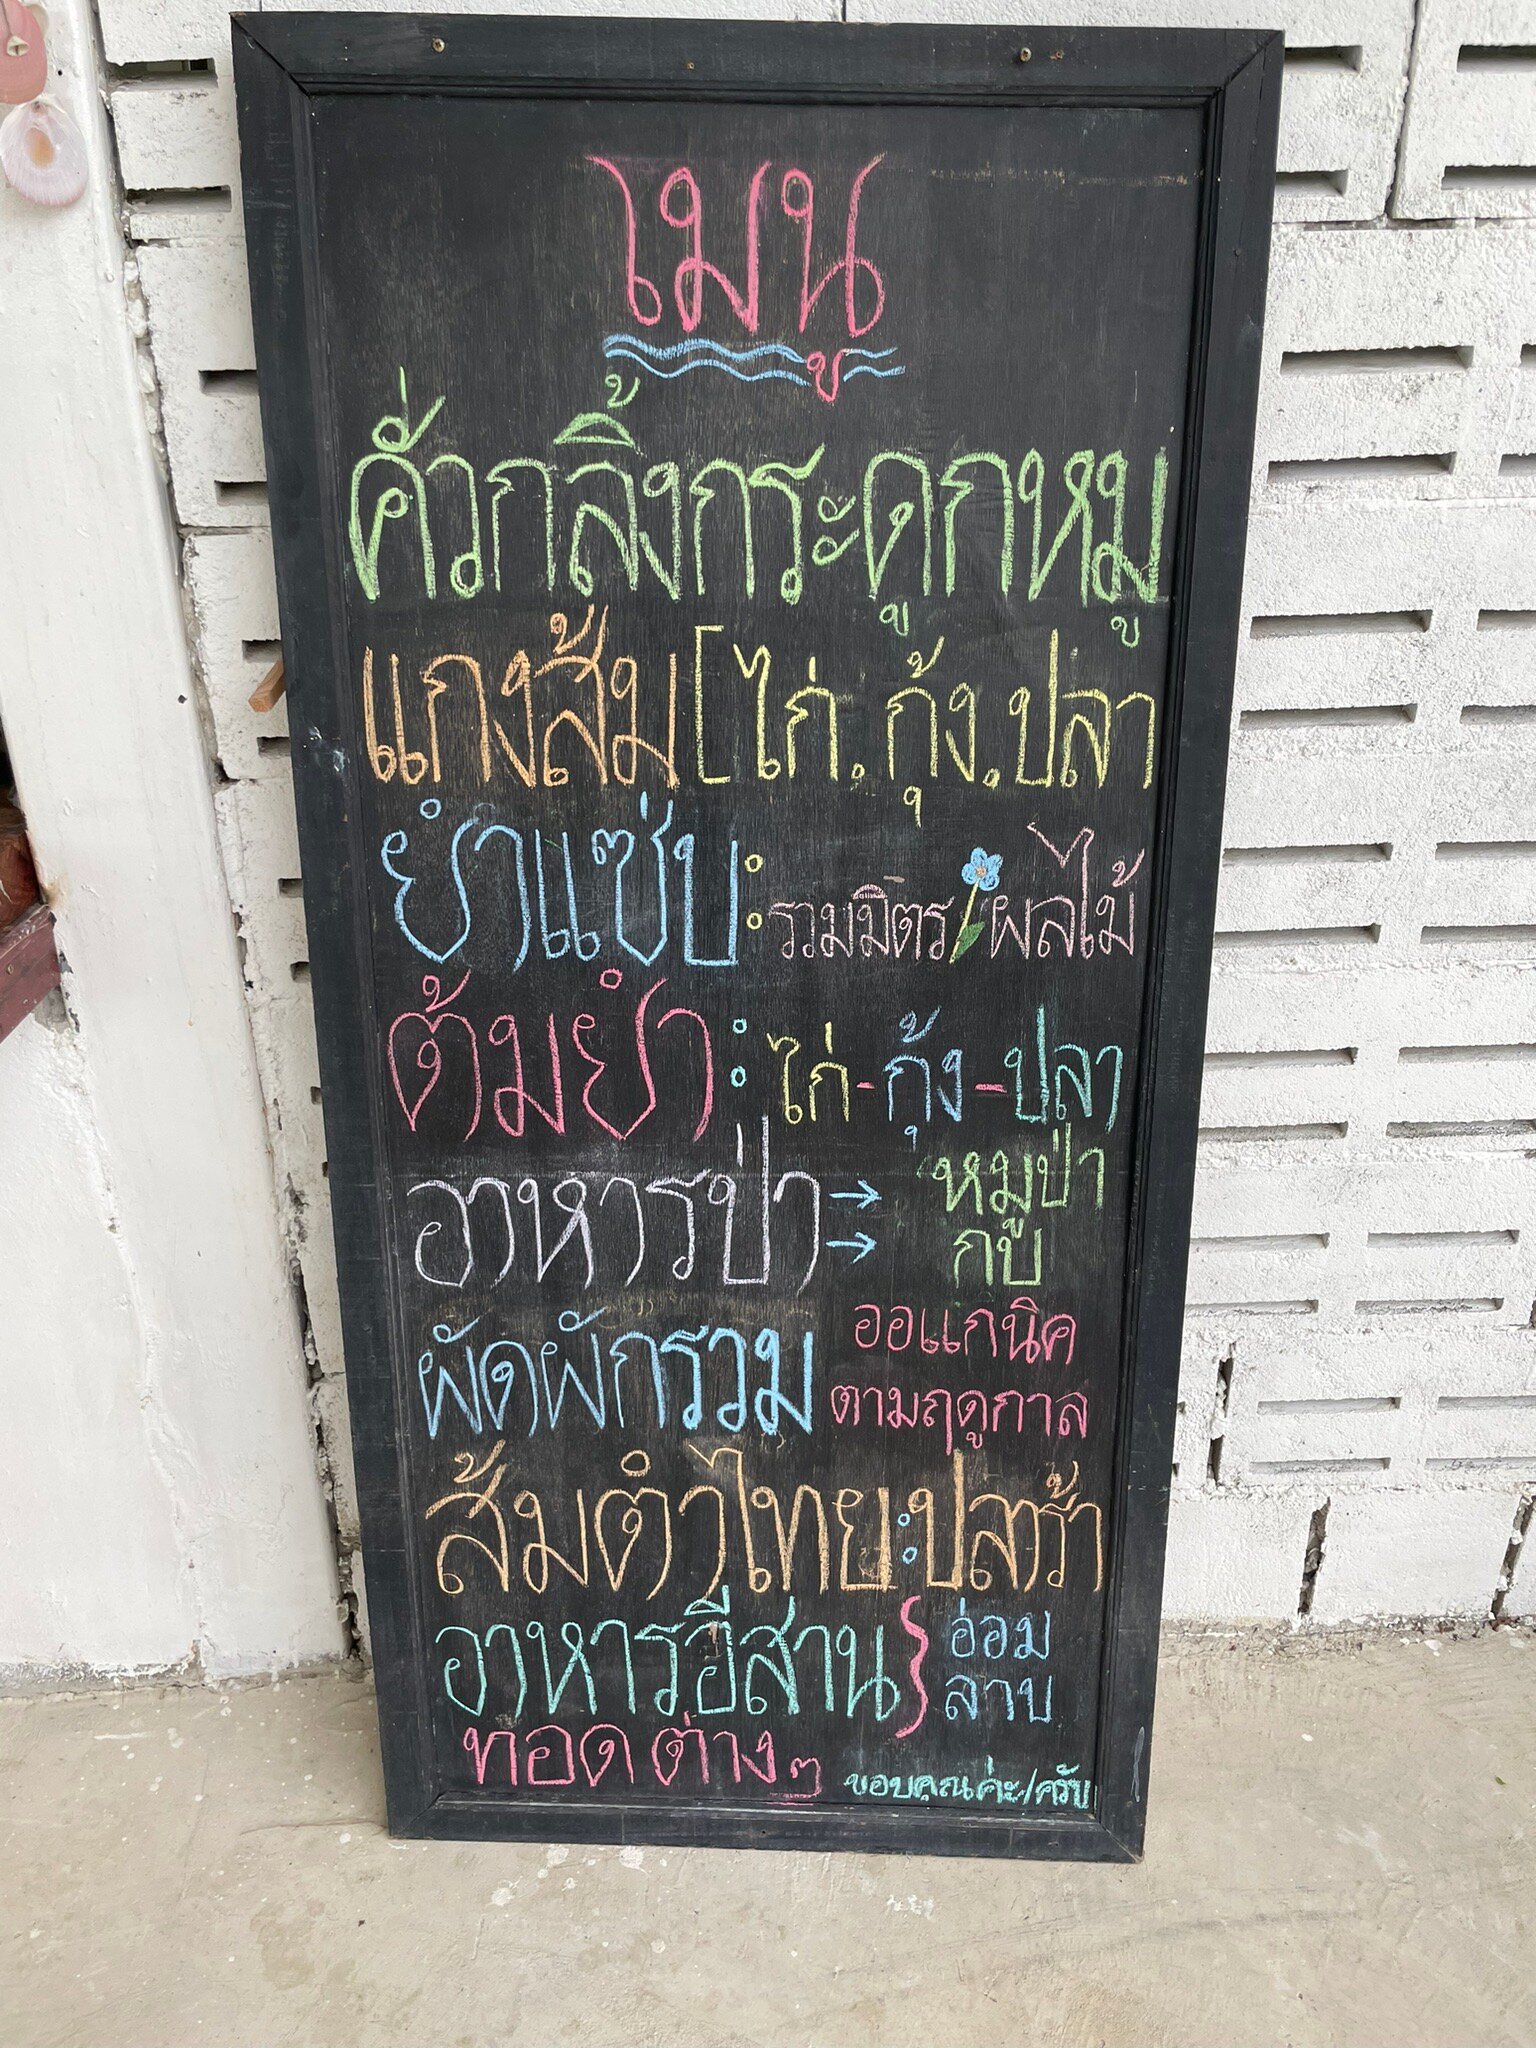 เมนู
คั่วกลิ้งกระดูกหมู
แกงส้ม [ไก่.กุ้ง.ปลา
ยำแซ่บ : รวมมิตร/ผลไม้
ต้มยำ : ไก่-กุ้ง-ปลา
อาหารป่า → หมูป่า
→ กบ
ผัดผักรวม ออแกนิค
ตามฤดูกาล
ส้มตำไทย : ปลาร้า
อาหารอีสาน } อ่อม
ลาบ
ทอด ต่างๆ
ขอบคุณค่ะ/ครับ